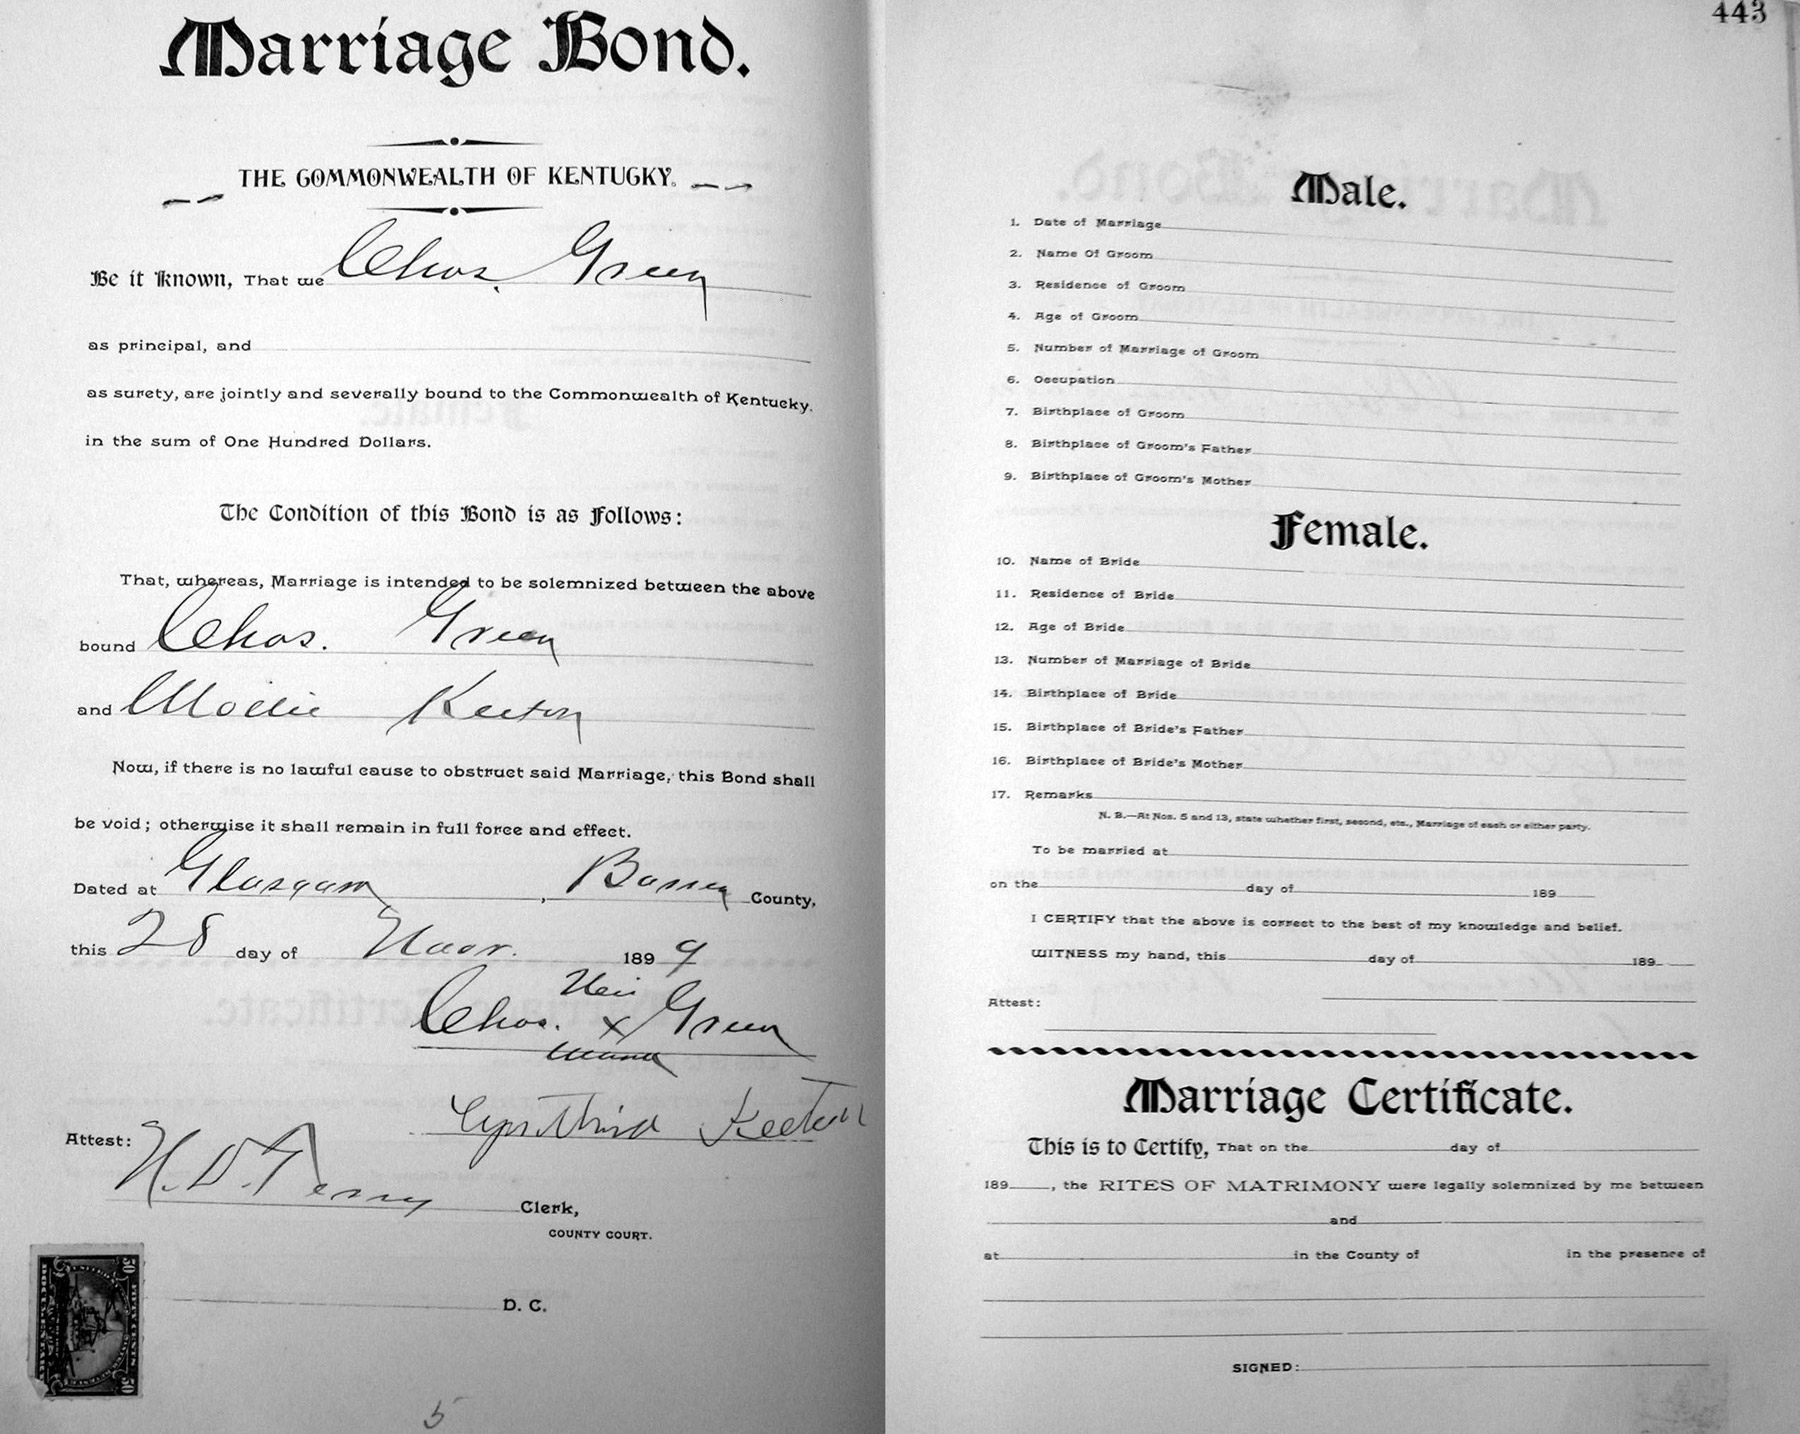 Marriage Bond.
THE COMMONWEALTH OF KENTUCKY.
Be it Known, That we Chas. Green
as principal, and
as surety, are jointly and severally bound to the Commonwealth of Kentucky.
in the sum of One Hundred Dollars.
The Condition of this Bond is as Follows:
That, whereas, Marriage is intended to be solemnized between the above
bound Chas. Green
and Mollie Keeton
Now, if there is no lawful cause to obstruct said Marriage, this Bond shall
be void; otherwise it shall remain in full force and effect.
Dated at Glasgow, Barren County,
this 28 day of Nov. 1899
His
Chas. x Green
mark
Cynthia Keeton
Attest:
Clerk,
COUNTY COURT.
D. C.
5
443
Male.
1. Date of Marriage
2. Name Of Groom
3. Residence of Groom
4. Age of Groom
5. Number of Marriage of Groom
6. Occupation
7. Birthplace of Groom
8. Birthplace of Groom's Father
9. Birthplace of Groom's Mother
Female.
10. Name of Bride
11. Residence of Bride
12. Age of Bride
13. Number of Marriage of Bride
14. Birthplace of Bride
15. Birthplace of Bride's Father
16. Birthplace of Bride's Mother
17. Remarks
N. B.—At Nos. 5 and 13, state whether first, second, etc., Marriage of each or either party.
To be married at
on the day of 189
I CERTIFY that the above is correct to the best of my knowledge and belief.
WITNESS my hand, this day of 189
Attest:
Marriage Certificate.
This is to Certify, That on the day of
189 , the RITES OF MATRIMONY were legally solemnized by me between
and
at in the County of in the presence of
SIGNED: